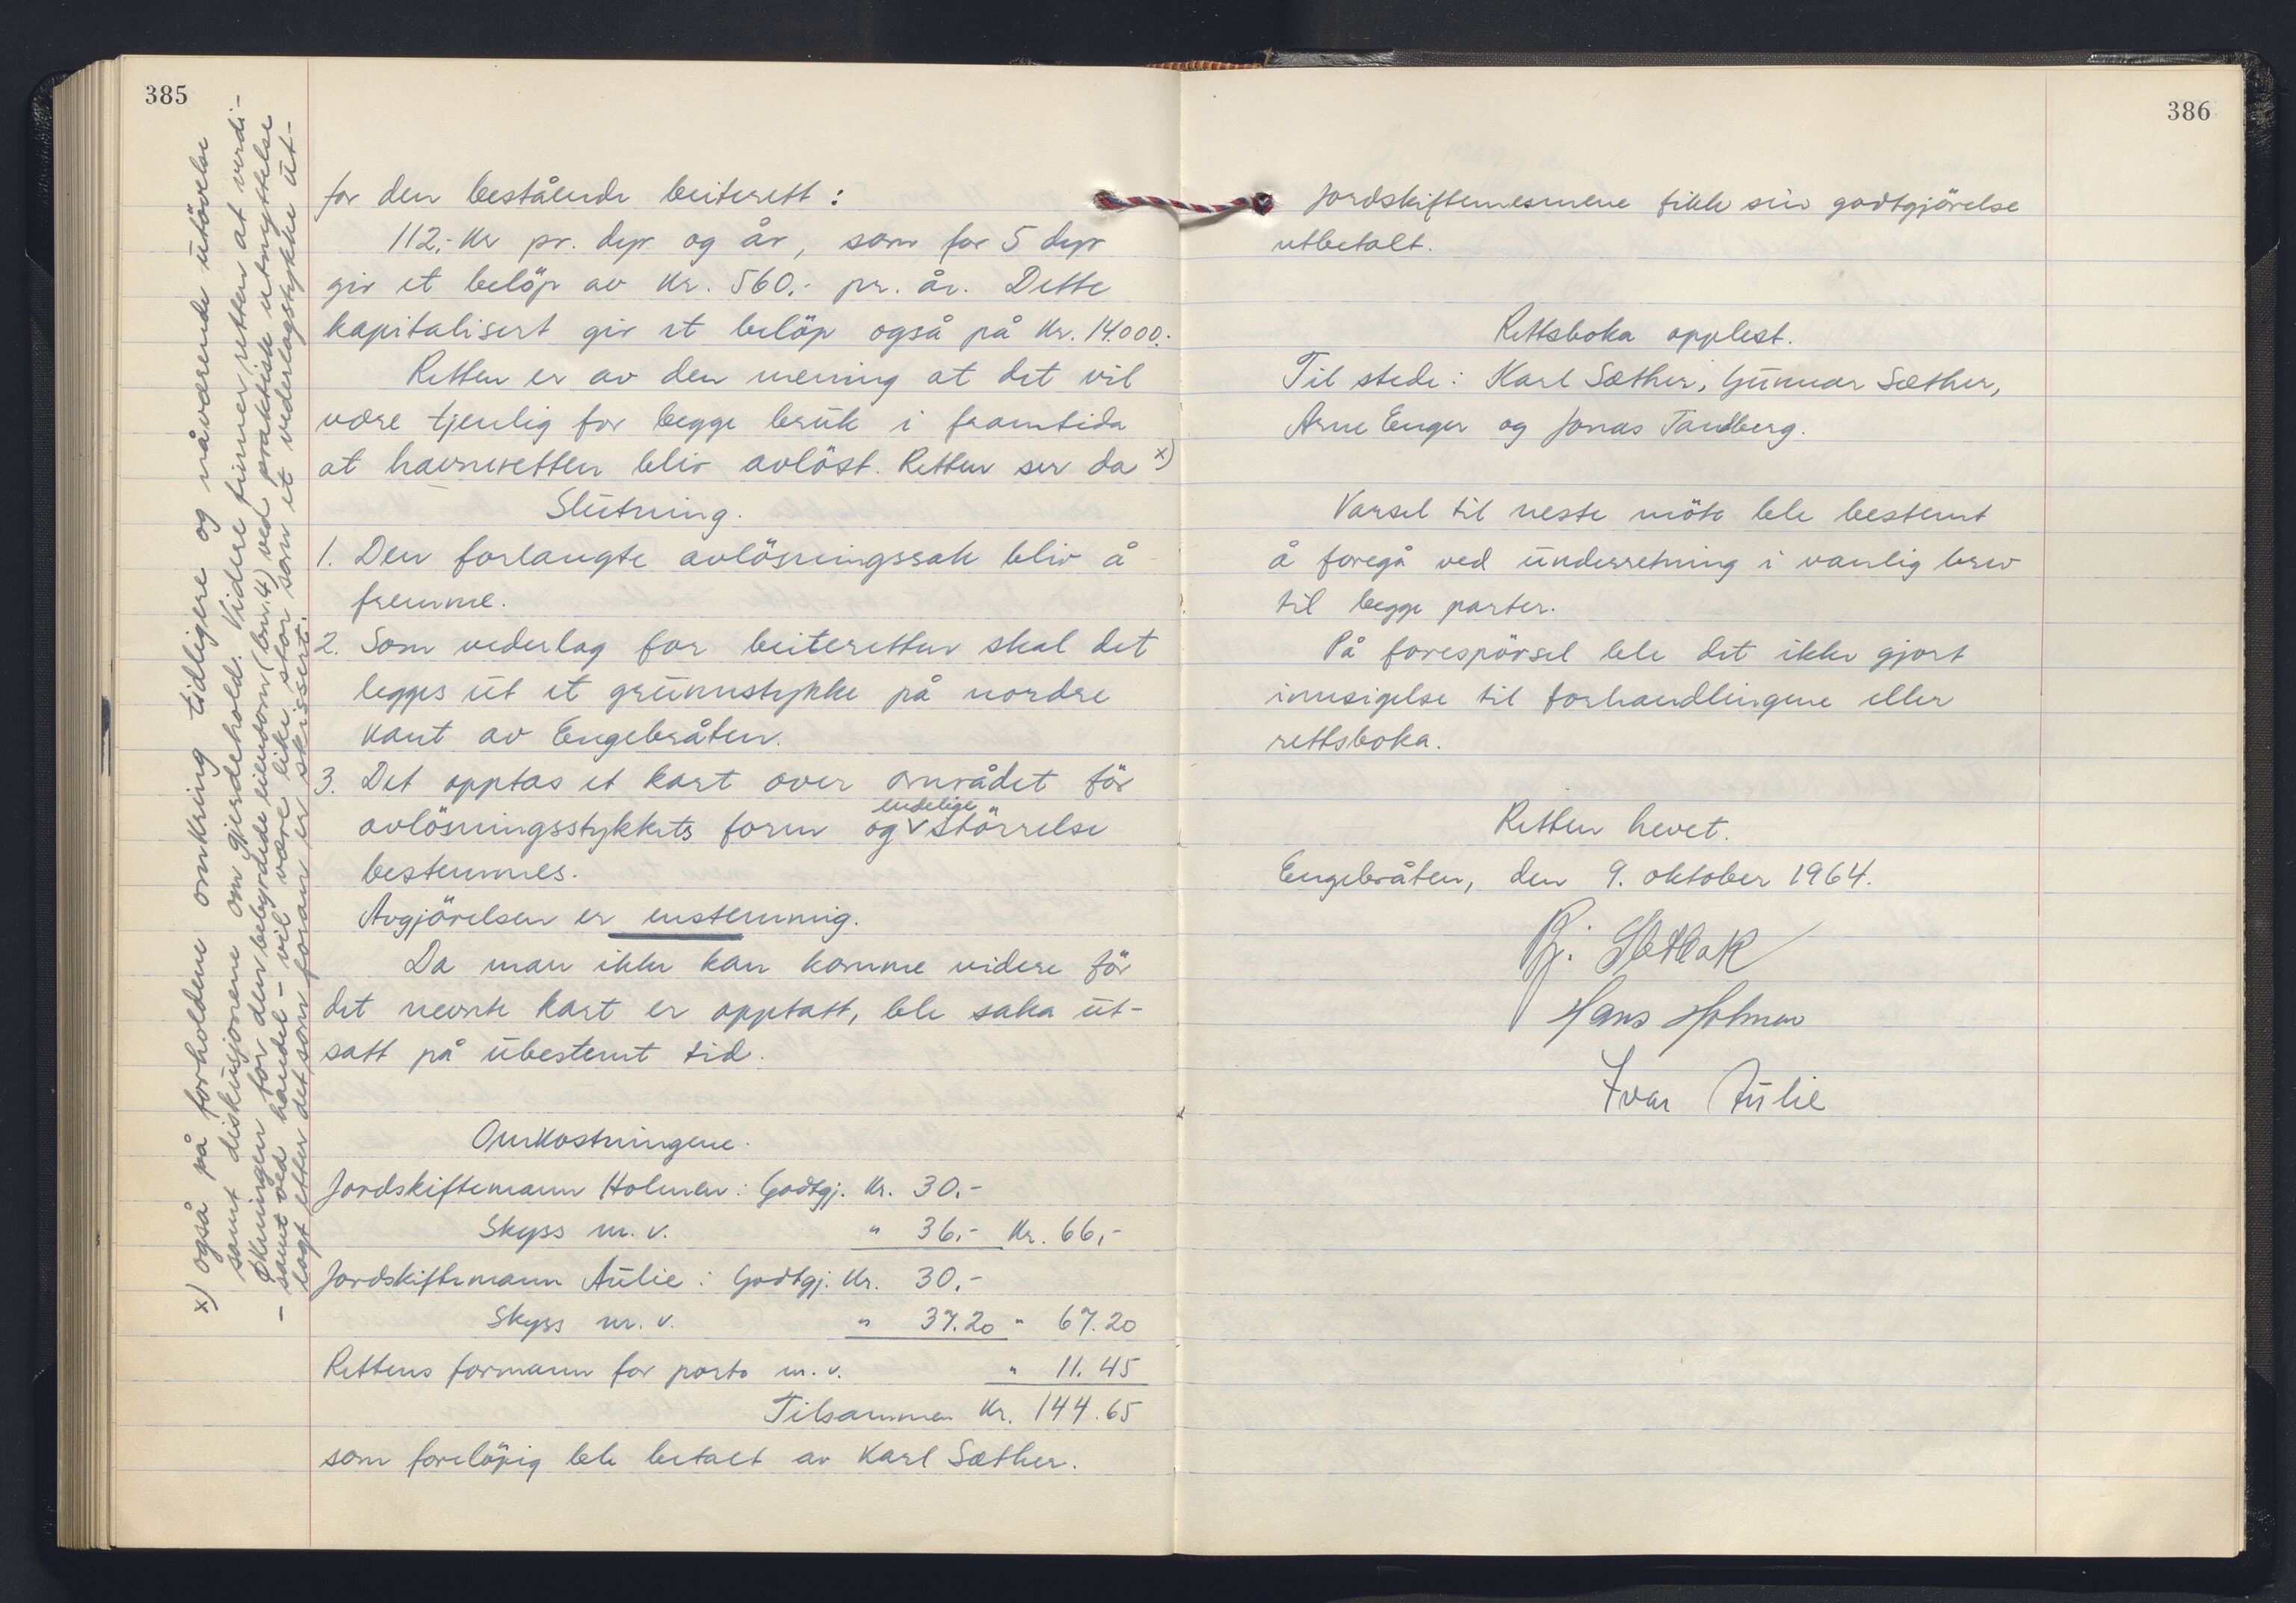 385
for den bestående beiterett:
112,- kr pr. dyr og år, som for 5 dyr
gir et belöp av kr. 560,- pr. år. Dette
kapitalisert gir et belöp også på kr. 14000,-
Retten er av den mening at det vil
være tjenlig for begge bruk i framtida
at havneretten blir avlöst. Retten ser da x)
Slutning.
1. Den forlangte avlösningssak blir å
fremme.
2. Som vederlag for beiteretten skal det
legges ut et grunnstykke på nordre
kant av Engebråten.
3. Det opptas et kart over området för
avlösningsstykkets form og endelige störrelse
bestemmes.
Avgjörelsen er enstemmig.
Da man ikke kan komme videre för
det nevnte kart er opptatt, ble saka ut-
satt på ubestemt tid.
Omkostningene.
Jordskiftemann Holmen: Godtgj. kr. 30,-
Skyss m. v. " 36,- kr. 66,-
Jordskiftemann Aulie: Godtgj. kr. 30,-
Skyss m. v. " 37.20 " 67.20
Rettens formann for porto m. v. " 11.45
Tilsammen kr. 144.65
som forelöpig ble betalt av Karl Sæther.
x) også på forholdene omkring tidligere og nåværende utövelse
samt diskusjonene om gjerdehold. Videre finner retten at verdi-
økningen for den bebyrdede eiendom (bnr. 4) ved praktisk utnyttelse
- samt ved handel - vil være like stor som et vederlagstykke ut-
lagt etter det som foran er skissert.
386
Jordskiftemennene fikk sin godtgjörelse
utbetalt.
Rettsboka opplest.
Til stede: Karl Sæther, Gunnar Sæther,
Arne Enger og Jonas Tandberg.
Varsel til neste möte ble bestemt
å foregå ved underretning i vanlig brev
til begge parter.
På forespörsel ble det ikke gjort
innsigelse til forhandlingene eller
rettsboka.
Retten hevet.
Engebråten, den 9. oktober 1964.
Bj.
Hans Holmen
Ivar Aulie